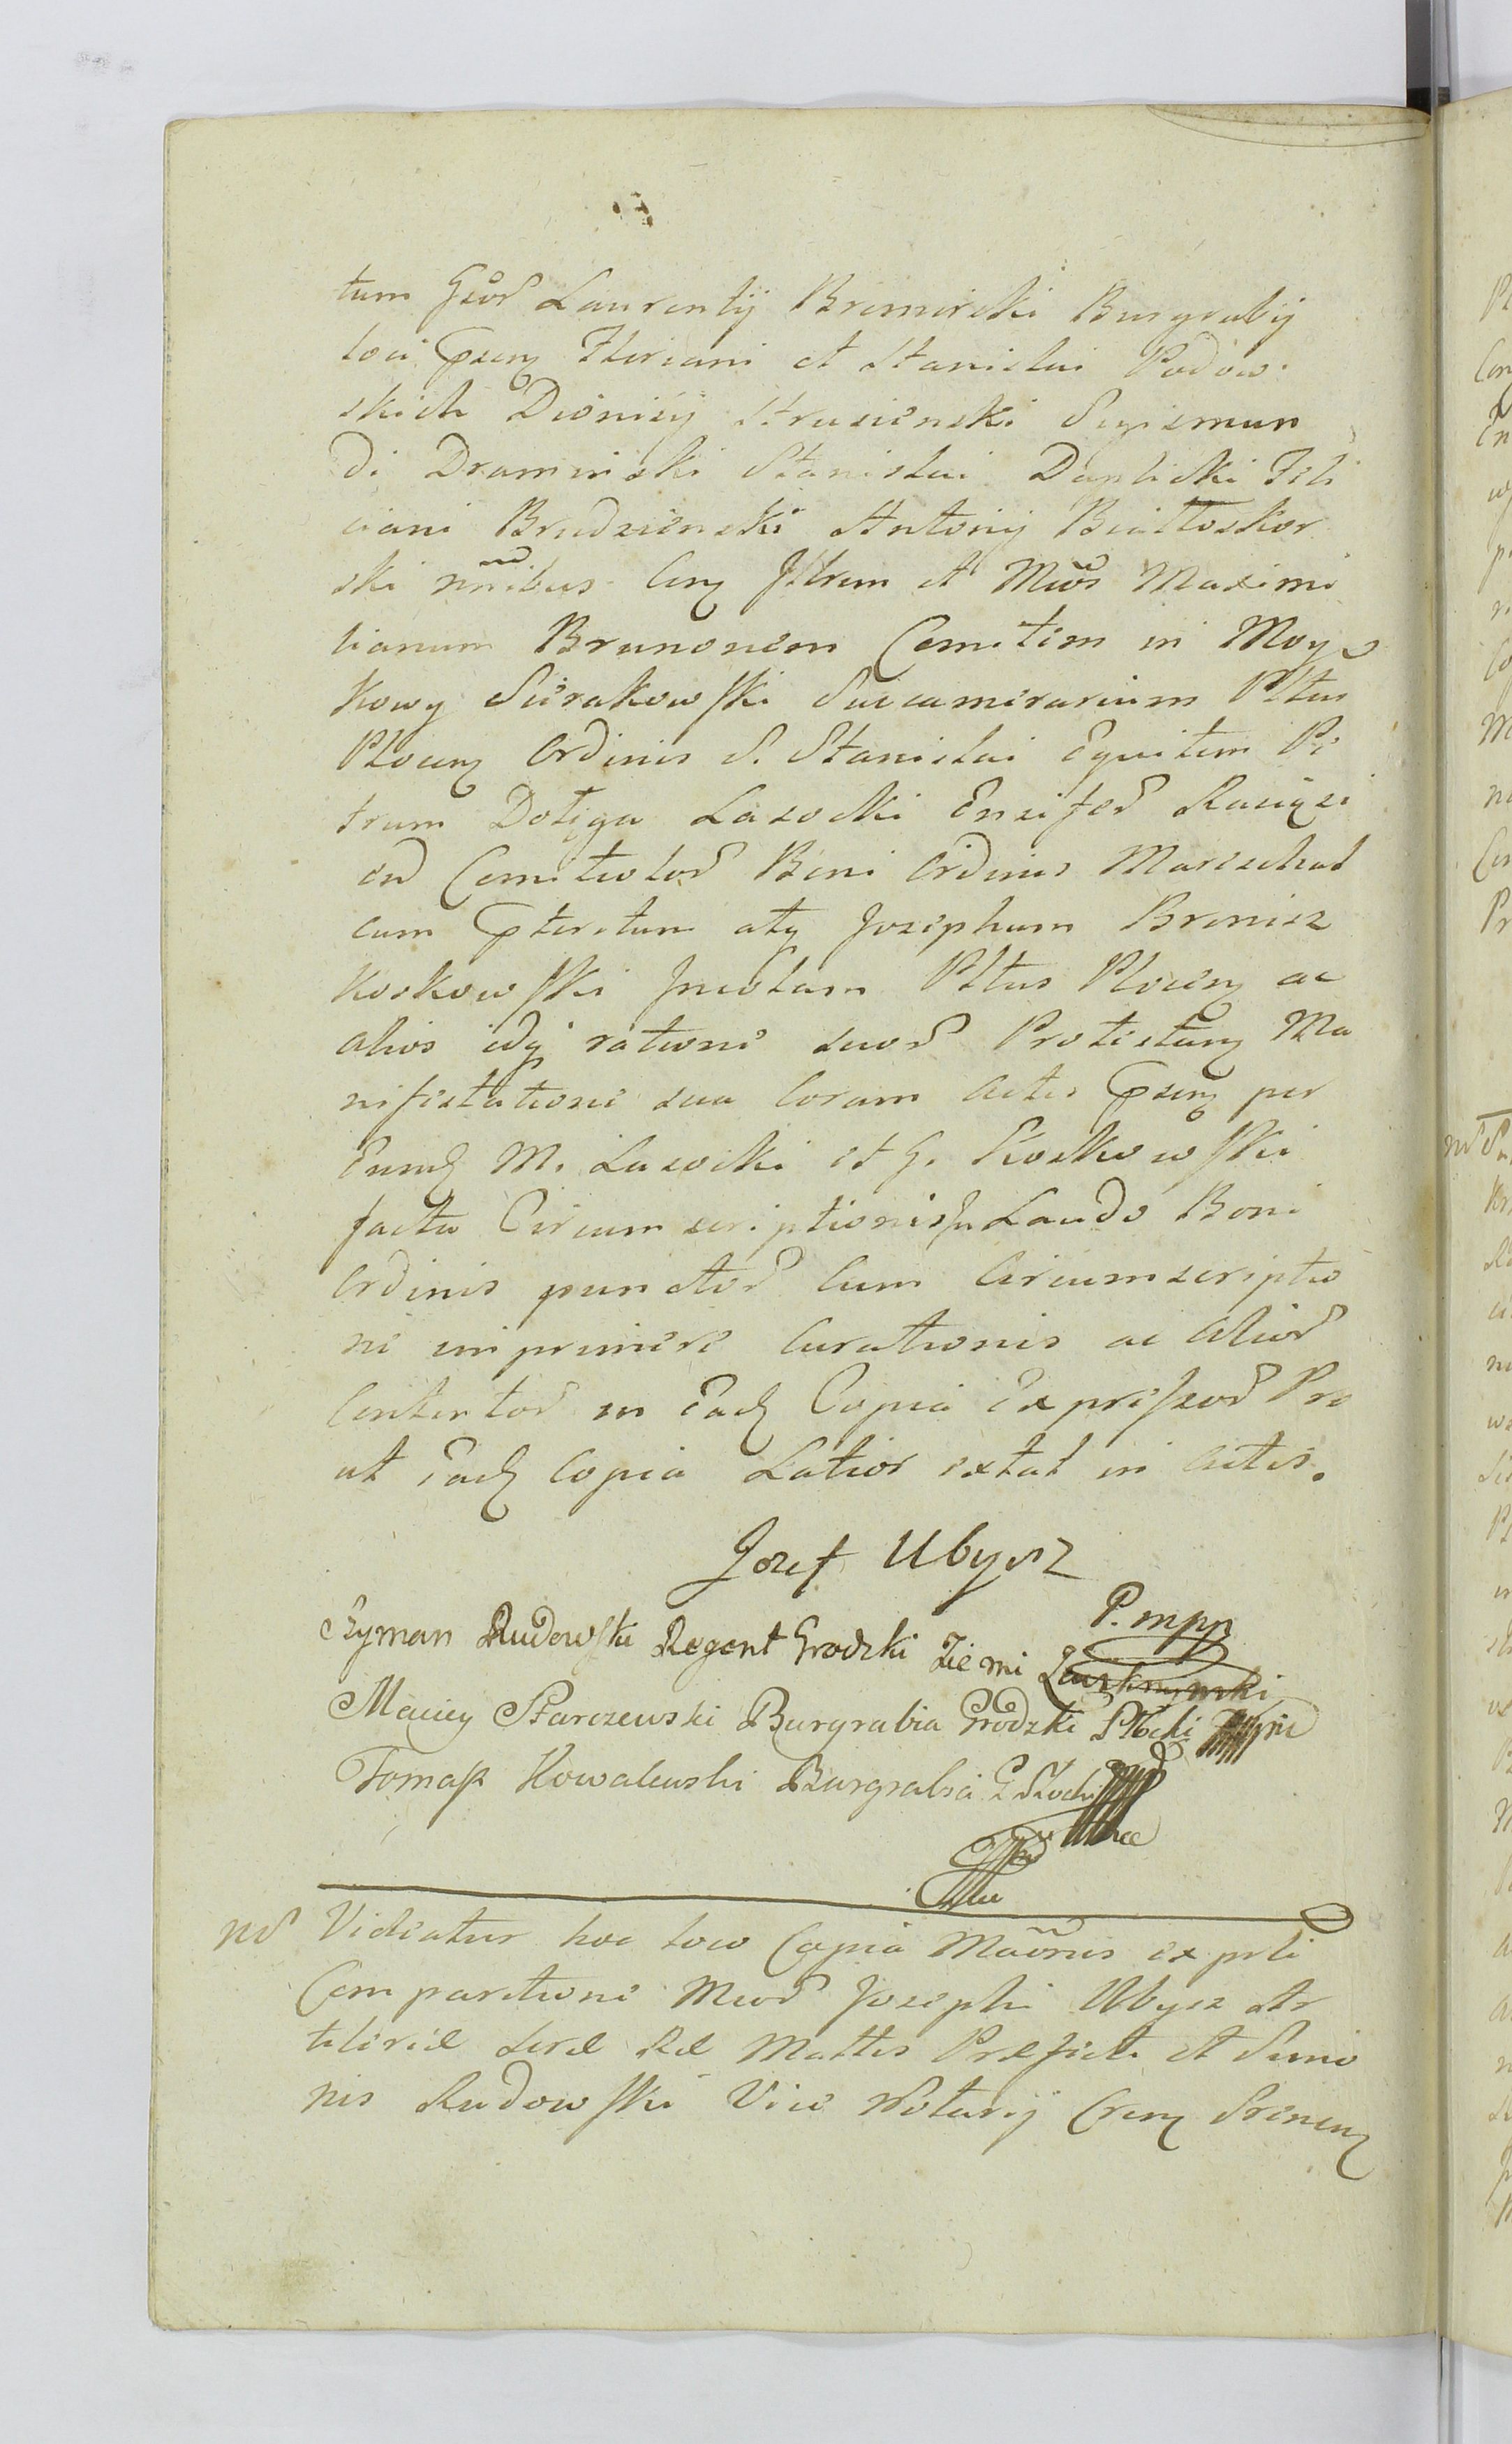 tum Gsor Laurentij Bromirski Burgrabij
loci Psenz Floriani et Stanislai Podow
skich Dionisij Strusienski Sigismun
di Draminski Stanislai Duplicki Feli
ciani Brudzienski Antonij Białłoskor
ski nnibus Cenz Jllrem et Mcos Maximi
lianum Brunonem Comitem in Moys
kowy Sierakowski Succamerarium Plttus
Plocenz Ordinis S. Stanislai Equitem Pe
trum Dołęga Lasocki Ensifer Raciązi
en Comitiolor Boni Ordinis Mareschal
cum Pteritum atq Josephum Bronisz
Koskowski Jncolam Plttus Plocenz ac
alios idq ratione suor Protestanz Ma
nifestatione sua Coram Actis Psenz per
Eund M. Lasocki et G. Koskowski
facta Circumscriptionis Jn Laudo Boni
Ordinis punctor Cum Circumscriptio
ne imprimere Curationis ac Alior
Contentor in Ead Copia Expressor Pro
ut Ead Copia Latior extat in Actis.
Jozef Ubysz
P. mpp
Szyman Rudowski Regent Grodzki Ziemi Zawkrzynski
Maciey Starczewski Burgrabia Grodzki Płocki
Tomasz Kowalewski Burgrabia G Płocki
Videatur hoc loco Copia Maonis ex prti
Comparitione Mcor Josephi Ubysz Ar
tileriæ Leræ Ræ Mattis Præfecti et Simo
nis Rudowski Vice Notarij Crenz Srenenz